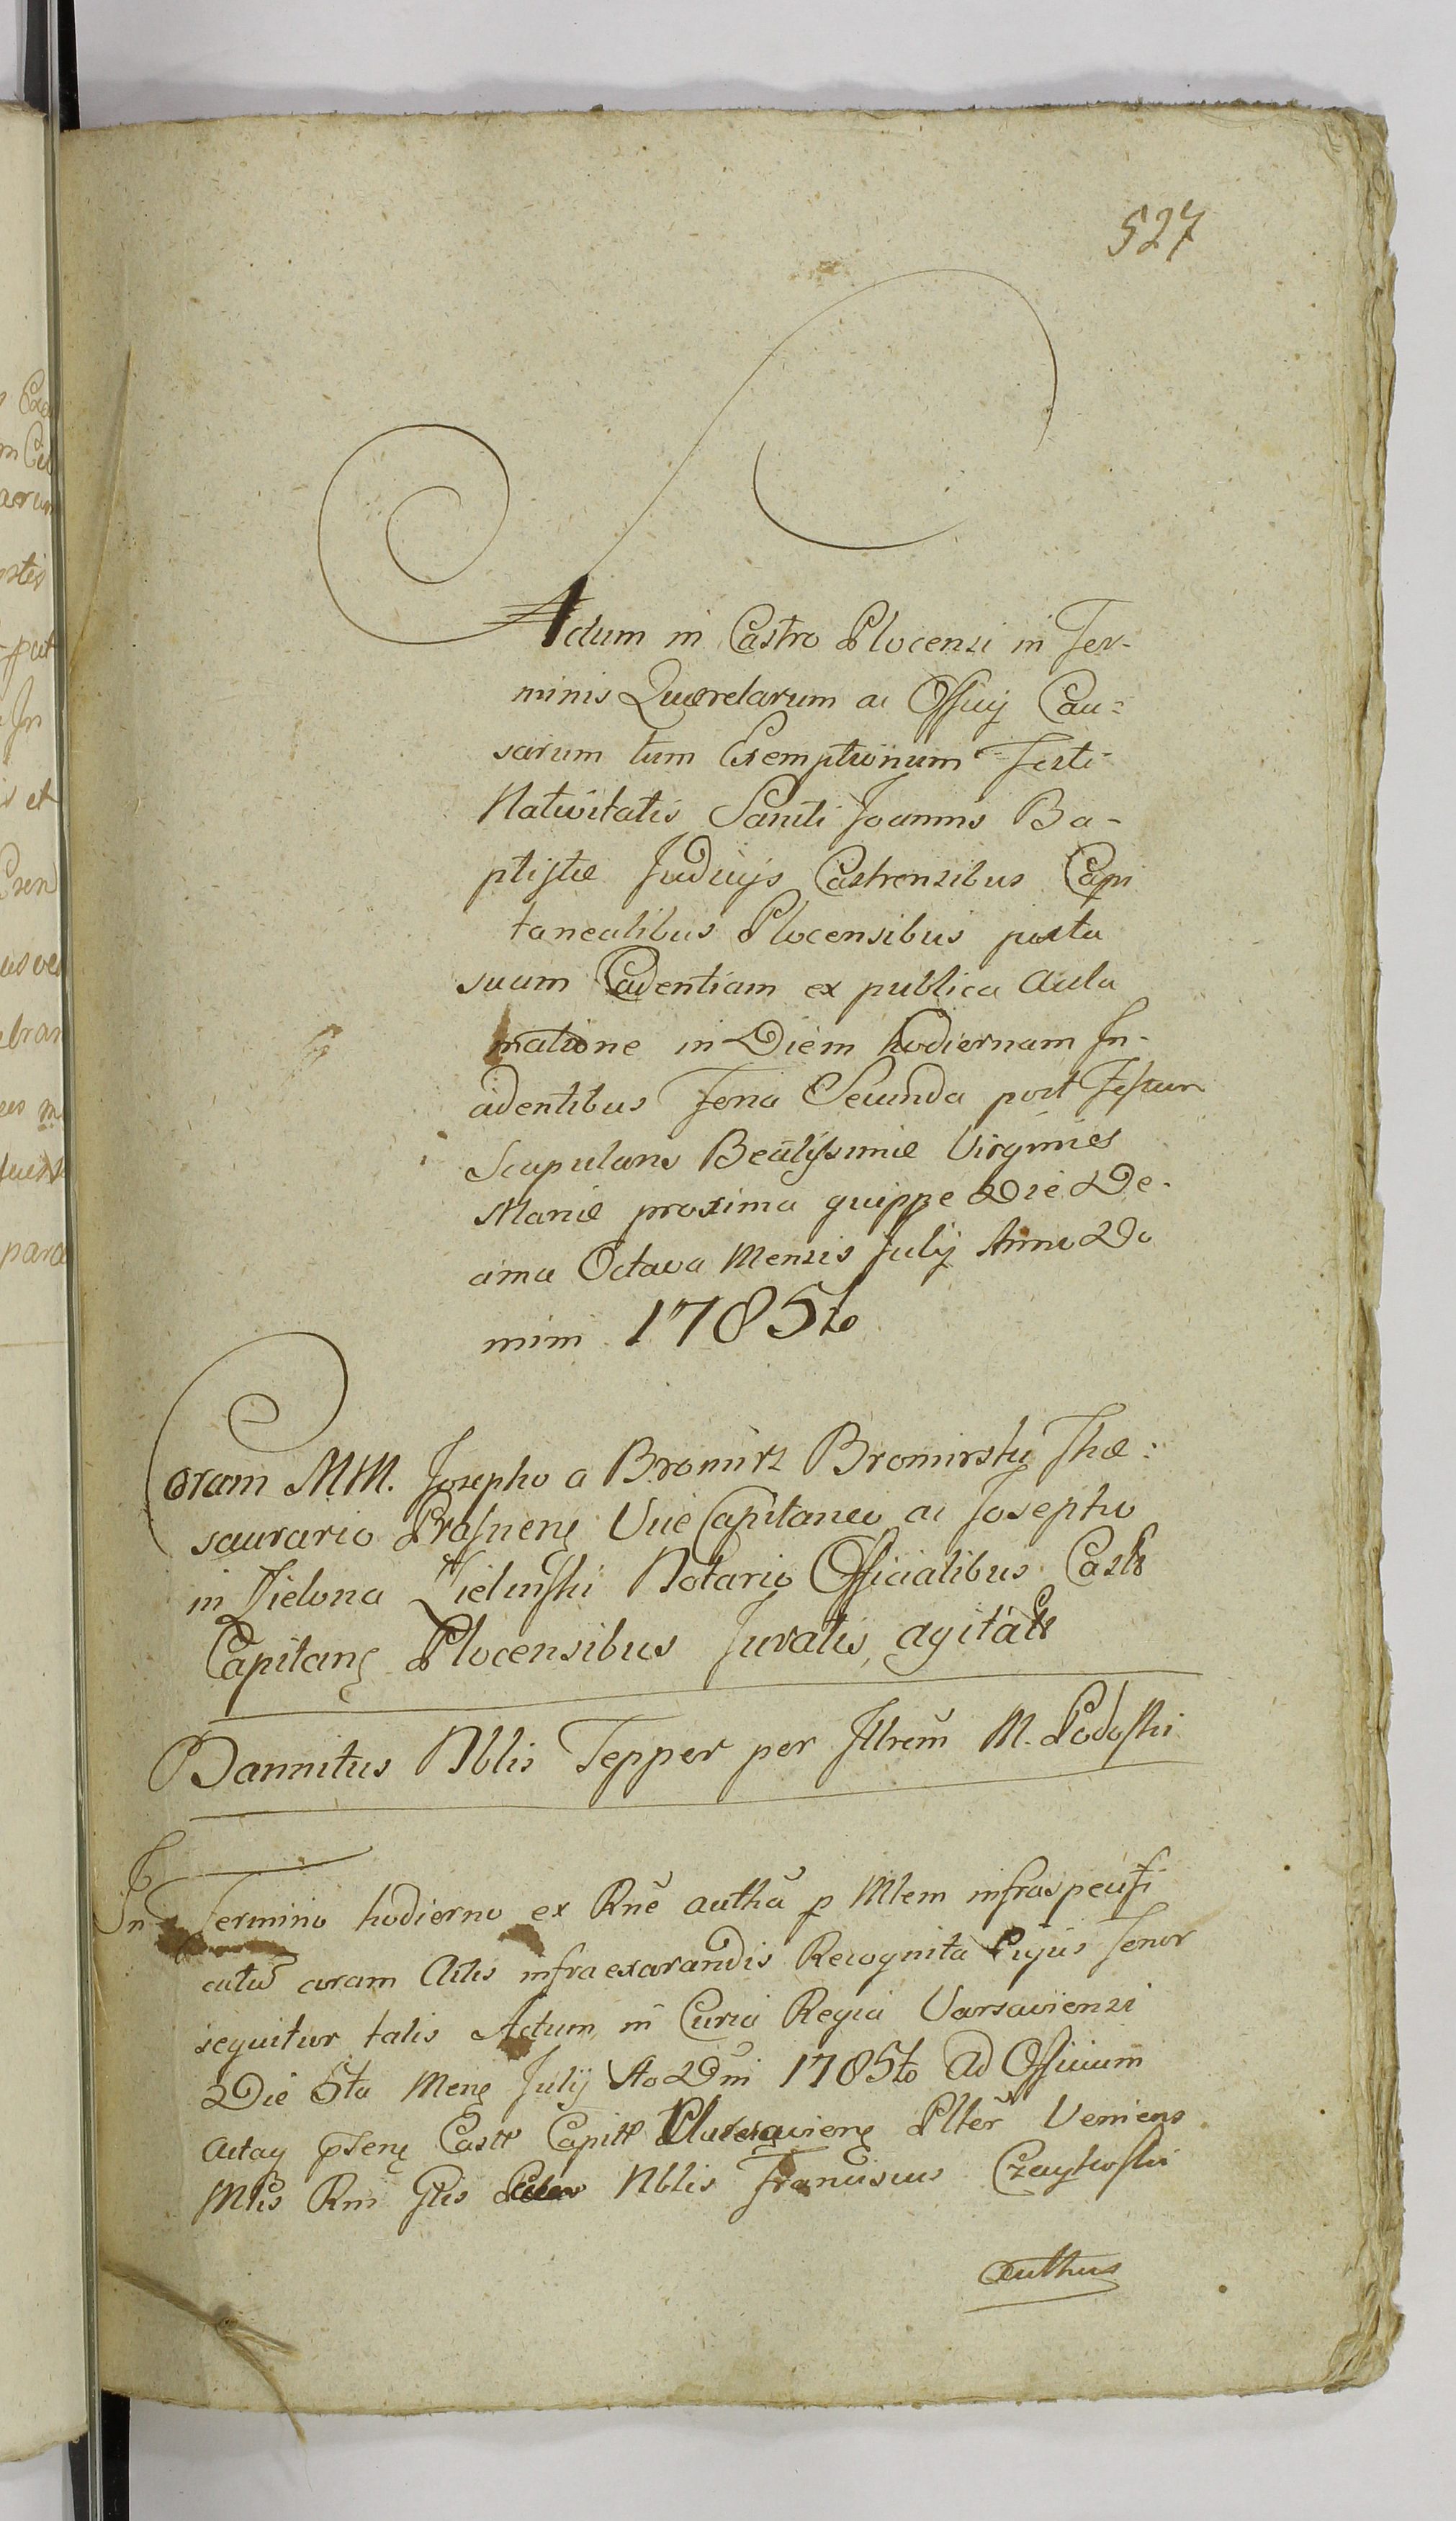 527
Actum in Castro Plocensi in Ter-
minis Querelarum ac Officij Cau=
sarum tum Exemptionum Festi
Nativitatis Sancti Joannis Ba-
ptistæ Judicijs Castrensibus Capi
tanealibus Plocensibus juxta
suam Cadentiam ex publica Acla
matione in Diem hodiernam In-
cidentibus Feria Secunda post Festum
Scapularis Beatissimæ Virginies
Mariæ proxima quippe Die De-
cima Octava Mensis Julij Anno Do
mini 1785to
Coram MM. Josepho a Bromirz Bromirsky The=
saurario Prasnenς Vice Capitaneo ac Josepho
in Zielona Zielinski Notario Officialibus Castr
Capitanς Plocensibus Juratis, agitatr
Bannitus Nblis Tepper per Illrem M. Podoski
In Termino hodierno ex Rne authæ p Mlem infraspecifi
catum coram Actis infraexarandis Recognita Cujus Tenor
sequitur talis Actum in Curia Regia Varsaviensi
Die 5ta Menς Julij Ao Dni 1785to Ad Officium
Actaq pTenς Castr Capitt Plter Veniens
Mtis Rni Glis Nblis Franciscus Czaykoski
authus